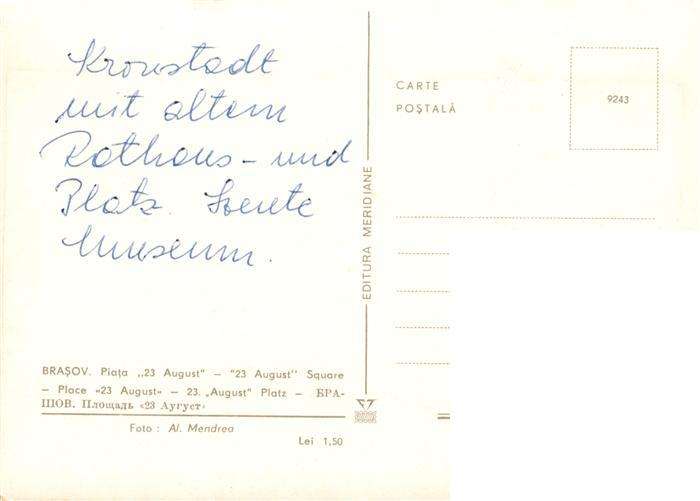 Kronstadt
mit altem
Rathaus - und
Platz. Heute
Museum.
BRAȘOV. Piața „23 August" — "23 August" Square
— Place «23 August» — 23. „August" Platz — БРА-
ШОВ. Площадь «23 Аугуст»
Foto : Al. Mendrea
Lei 1,50
EDITURA MERIDIANE
CARTE
POȘTALĂ
9243